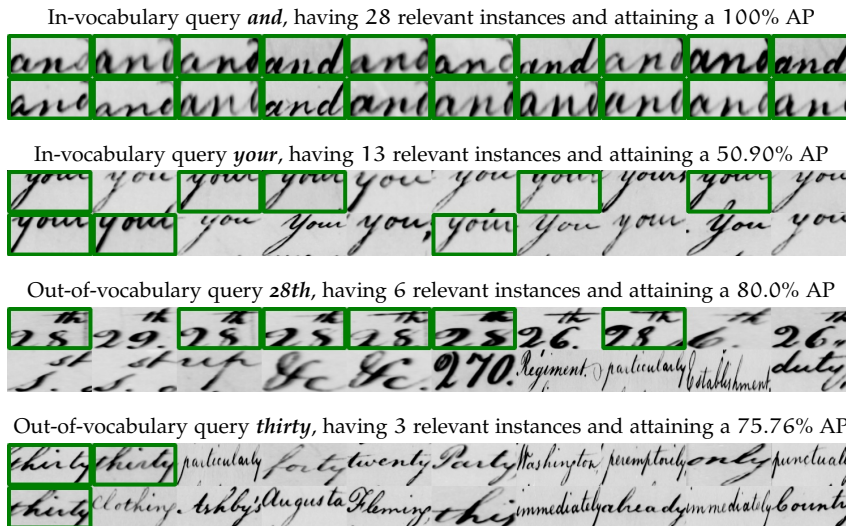 In-vocabulary query and, having 28 relevant instances and attaining a 100% AP
and and and and and and and and and and
and and and and and and and and and and
In-vocabulary query your, having 13 relevant instances and attaining a 50.90% AP
your you your your you you your yours your you
your your you your you, your you your. you you
Out-of-vocabulary query 28th, having 6 relevant instances and attaining a 80.0% AP
28th 29th 28th 28th 28th 28th 26th 28th 6th 26th
&c. &c. 270. Regiment. particularly Establishment, duty,
Out-of-vocabulary query thirty, having 3 relevant instances and attaining a 75.76% AP
thirty thirty particularly forty twenty Party Washington peremptorily only punctual
thirty Clothing Ashby's Augusta Fleming, this immediately already immediately County